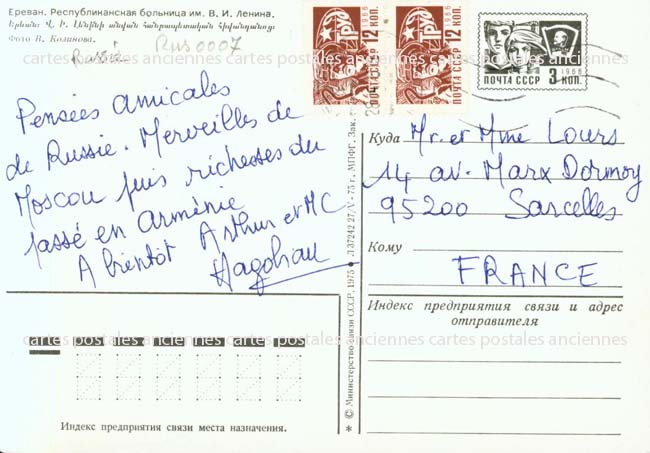 Ереван. Республиканская больница им. В. И. Ленина.
Երևան: Վ. Ի. Լենինի անվան հանրապետական հիվանդանոցը
Фото В. Козинова.
Russia Rus0007
cartes postales anciennes cartes postales anciennes cartes postales anciennes
ПОЧТА СССР 12 КОП.
1966
ПОЧТА СССР 12 КОП.
1966
ПОЧТА СССР 3 1966 КОП.
Pensées amicales
de Russie. Merveilles de
Moscou puis richesses du
passé en Arménie
A bientôt Arthur et MC
Куда Mr. et Mme Lours
14 av. Marx Dormoy
95200 Sarcelles
Кому
FRANCE
Индекс предприятия связи и адрес
отправителя
cartes postales anciennes cartes postales anciennes cartes postales anciennes
Индекс предприятия связи места назначения.
* © Министерство связи СССР, 1975 • 137242 27/V - 75 г., МПФГ. Зак.